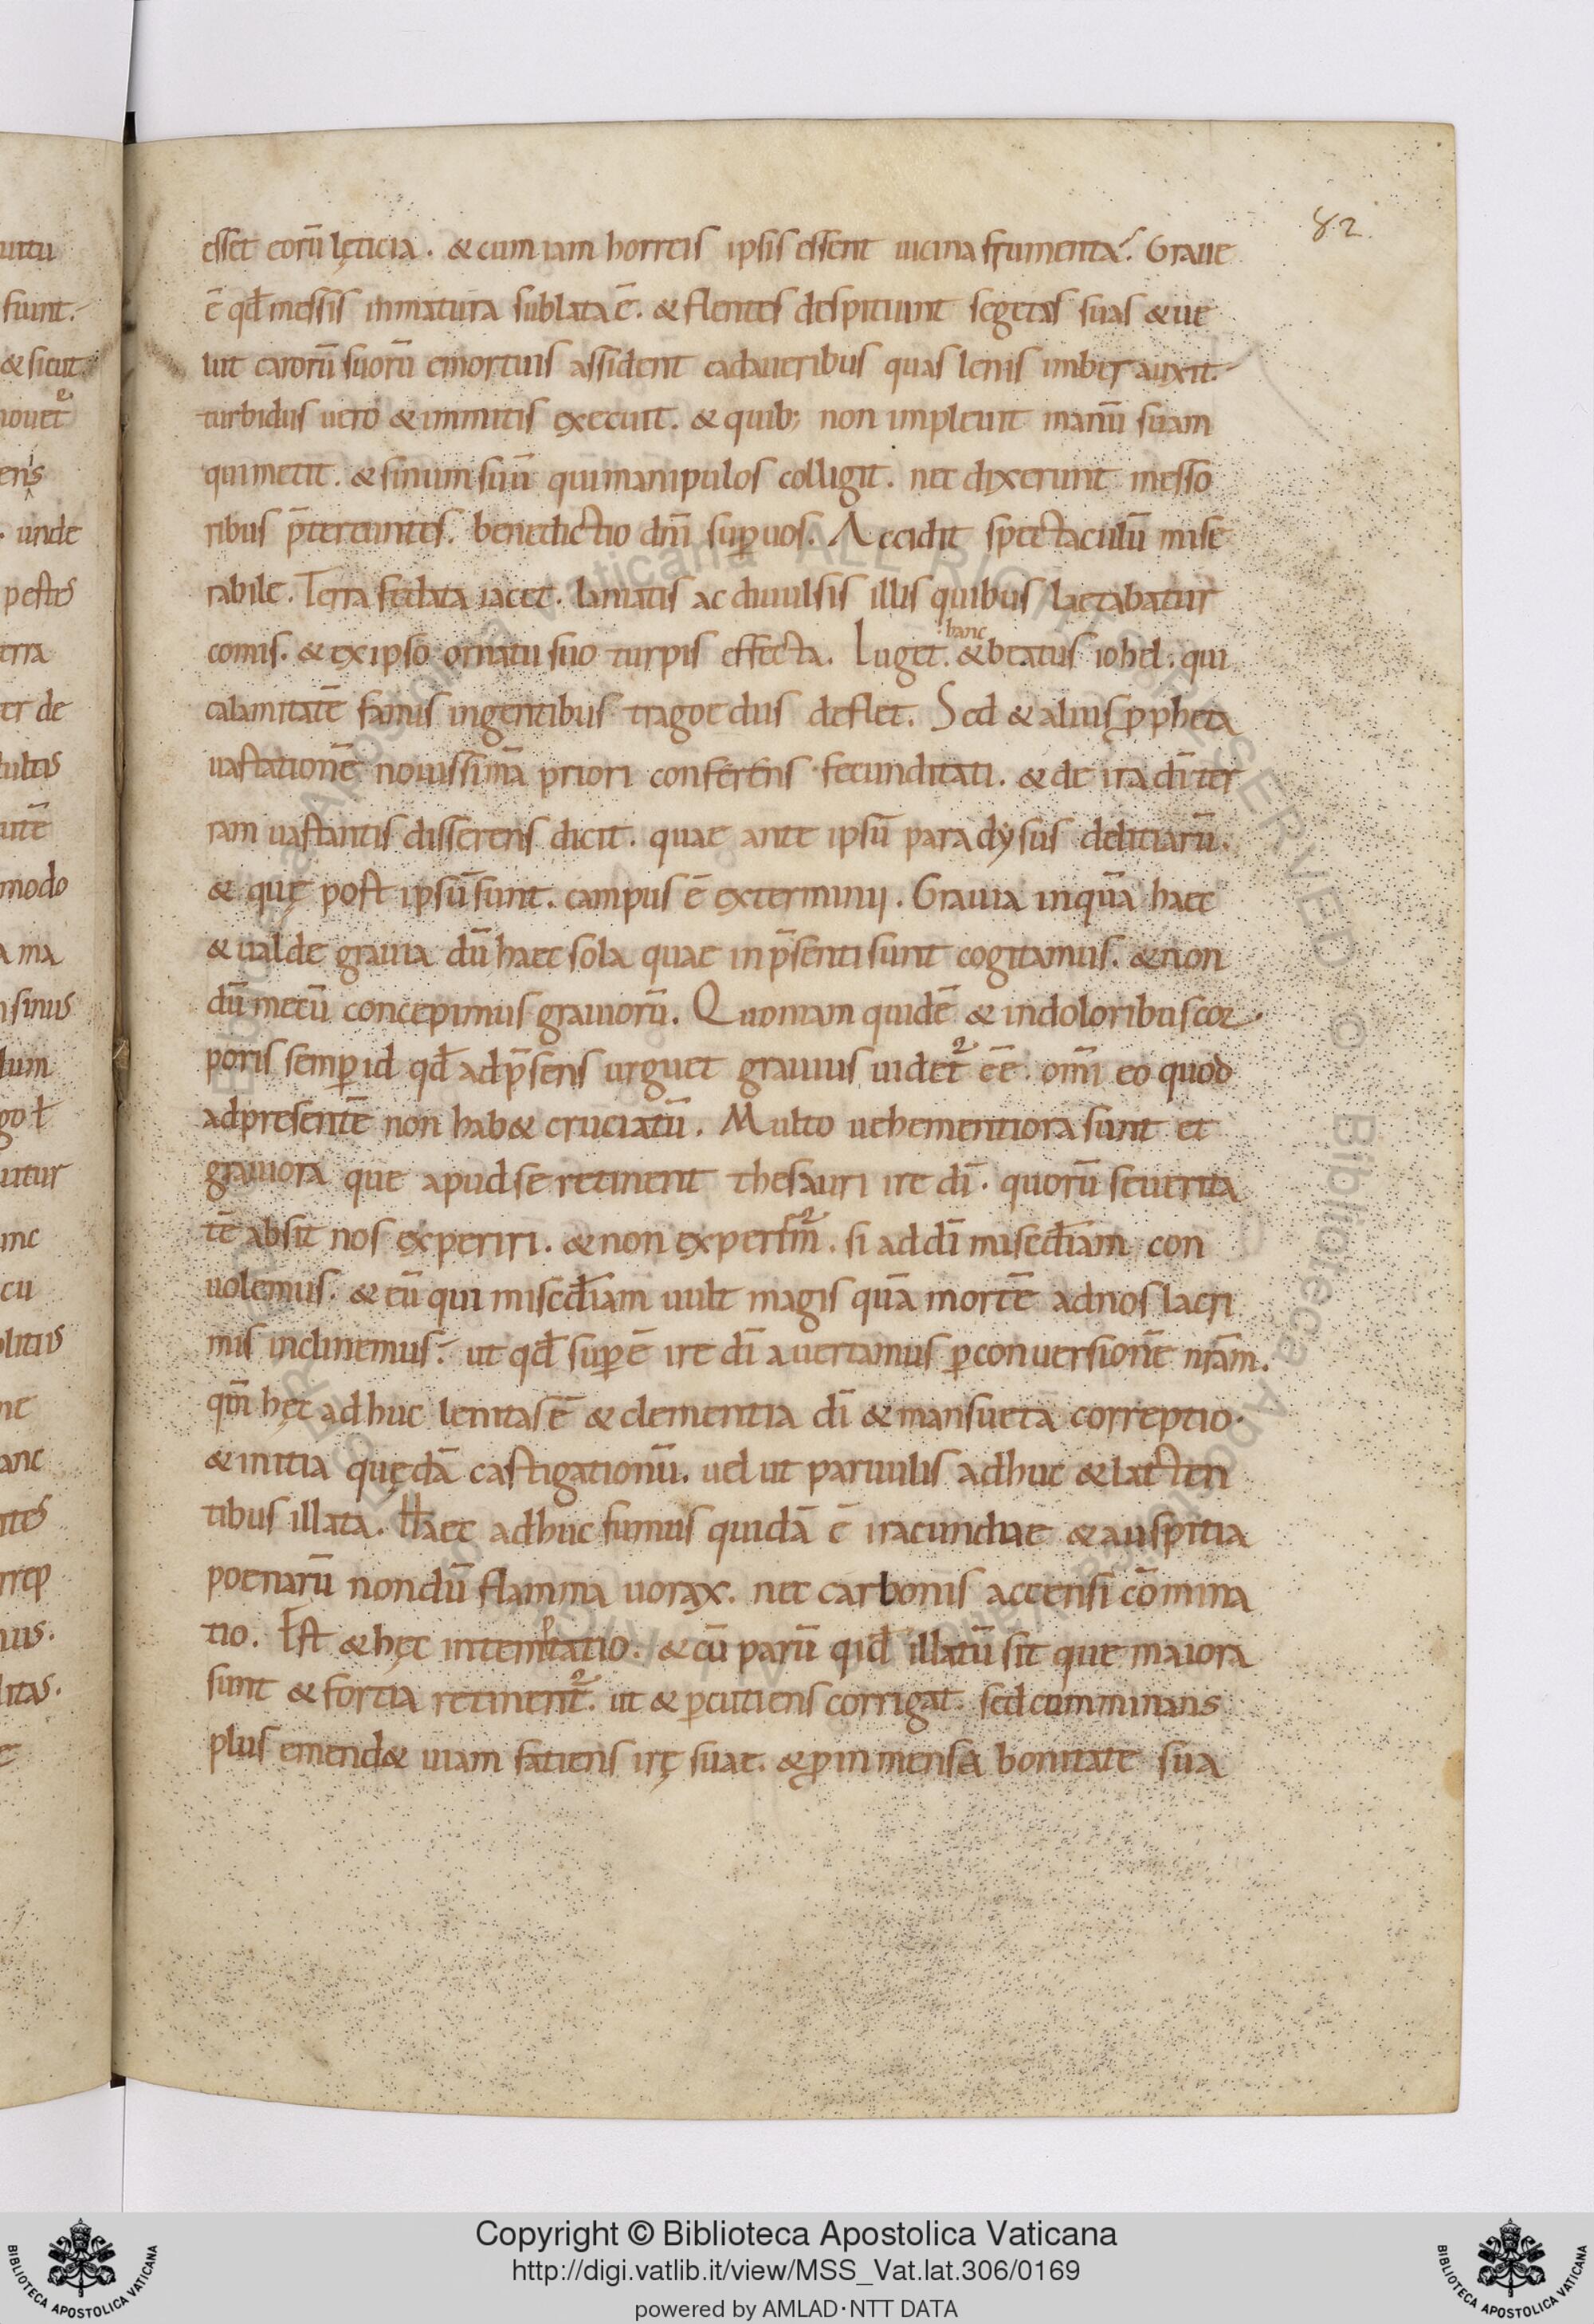 82.
esset eorū lęticia. & cum iam horreis ipsis essent uicina frumenta? Graue
ē qđ messis inmatura sublata ē. & flentes despitiunt segetes suas & ue
lut carorū suorū emortuis assident cadaueribus quas lenis imber auxit.
turbidus uero & inmitis execuit. & quib; non impleuit manū suam
qui metit. & sinum suū qui manipulos colligit. nec dixerunt messo
ribus p̄tereuntes. benedictio dn̄i suꝑ uos. Accidit spectaculū mise
rabile. Terra fedata iacet. laniatis ac diuulsis illis quibus laetabatur
comis. & ex ipso ornatu suo turpis effecta. Luget. hanc & beatus iohel. qui
calamitatē famis ingentibus tragoediis deflet. Sed & alius ꝓpheta
uastationē nouissimā priori conferens fecunditati. & de ira dī ter
ram uastantis disserens dicit. quae ante ipsū paradysus delitiarū.
& quę post ipsū sunt. campus ē exterminij. Grauia inquā haec
& ualde grauia dū haec sola quae in p̄senti sunt cogitamus. & non
dū mecū concepimus grauiorū. Quoniam quidē & in doloribus cor
poris semꝑ id qđ ad p̄sens urguet grauius uidet᷑ eē. om̄i eo quod
ad presentē non hab& cruciatū. Multo uehementiora sunt et
grauiora que apud se retinent thesauri ire dī. quorū seuerita
tē absit nos experiri. & non experiem᷑. si ad dī misecđiam con
uolemus. & eū qui misecđiam uult magis quā mortē ad nos lacri
mis inclinemus. ut qđ suꝑ ē ire dī auertamus ꝑ conuersionē nr̄am.
qm̄ hęc adhuc lenitas ē & clementia dī & mansueta correptio.
& initia quędā castigationū. uel ut paruulis adhuc & lacten
tibus illata. Haec adhuc fumus quidā ē iracundiae & auspitia
poenarū nondū flamma uorax. nec carbonis accensi cōmina
tio. Est & hęc intemptatio. & cū parū qiđ illatū sit que maiora
sunt & fortia retinent᷑. ut & ꝑcutiens corrigat. sed cumminans
plus emend& uiam fatiens irę suae. & ꝓ inmensa bonitate sua
Copyright © Biblioteca Apostolica Vaticana
http://digi.vatlib.it/view/MSS_Vat.lat.306/0169
powered by AMLAD·NTT DATA